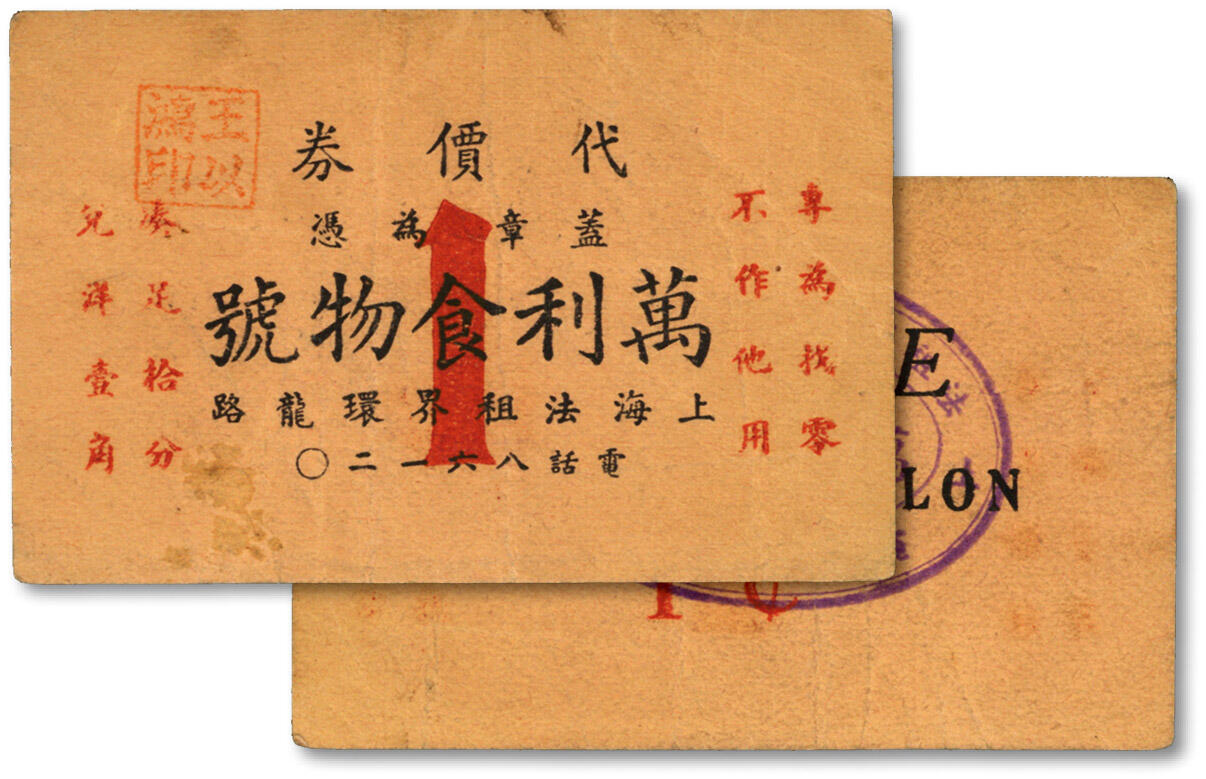 王以鴻印
代價券
蓋章為憑
萬利食物號
上海法租界環龍路
電話八六一二〇
1
專為找零
不作他用
湊足拾分
兌洋壹角
E
LON
1 ¢